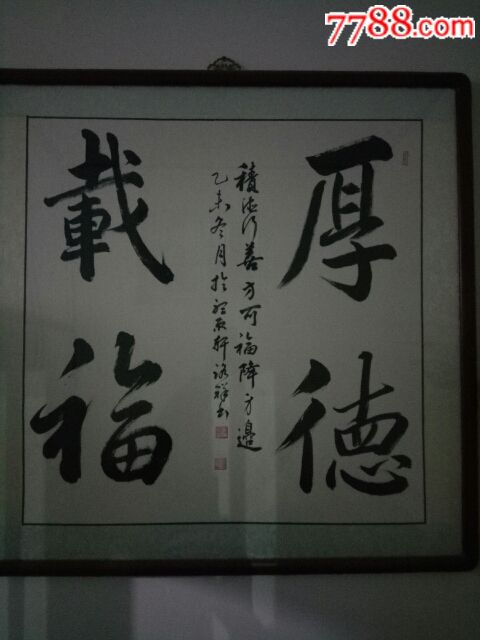 7788.com
厚德
積德行善方可福降方邊
乙未冬月於
軒
祥書
載福